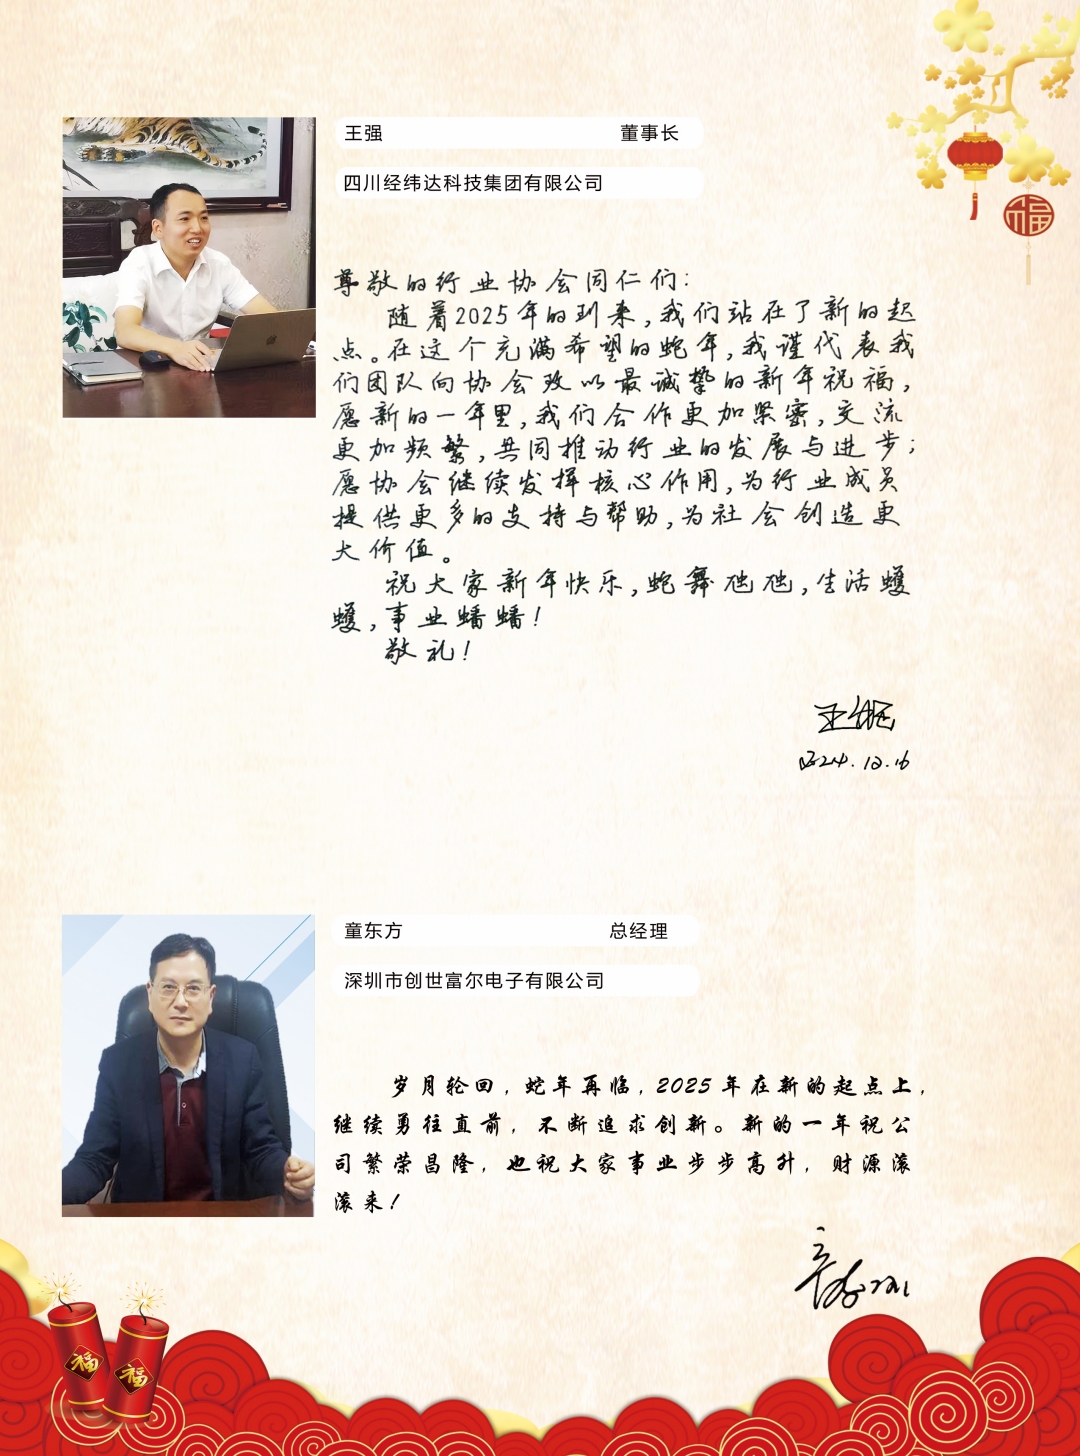 福
王强 董事长
四川经纬达科技集团有限公司
尊敬的行业协会同仁们：
随着2025年的到来，我们站在了新的起
点。在这个充满希望的蛇年，我谨代表我
们团队向协会致以最诚挚的新年祝福，
愿新的一年里，我们合作更加紧密，交流
更加频繁，共同推动行业的发展与进步；
愿协会继续发挥核心作用，为行业成员
提供更多的支持与帮助，为社会创造更
大价值。
祝大家新年快乐，蛇舞虺虺，生活蠖
蠖，事业蟠蟠！
敬礼！
王强
2024.12.16
童东方 总经理
深圳市创世富尔电子有限公司
岁月轮回，蛇年再临，2025年在新的起点上，
继续勇往直前，不断追求创新。新的一年祝公
司繁荣昌隆，也祝大家事业步步高升，财源滚
滚来！
福
福